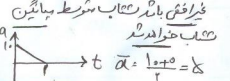 غیرافقی باشد شتاب متوسط میانگین
شتاب خواهد شد
a
10
t
ā = (10+0)/2 = 5